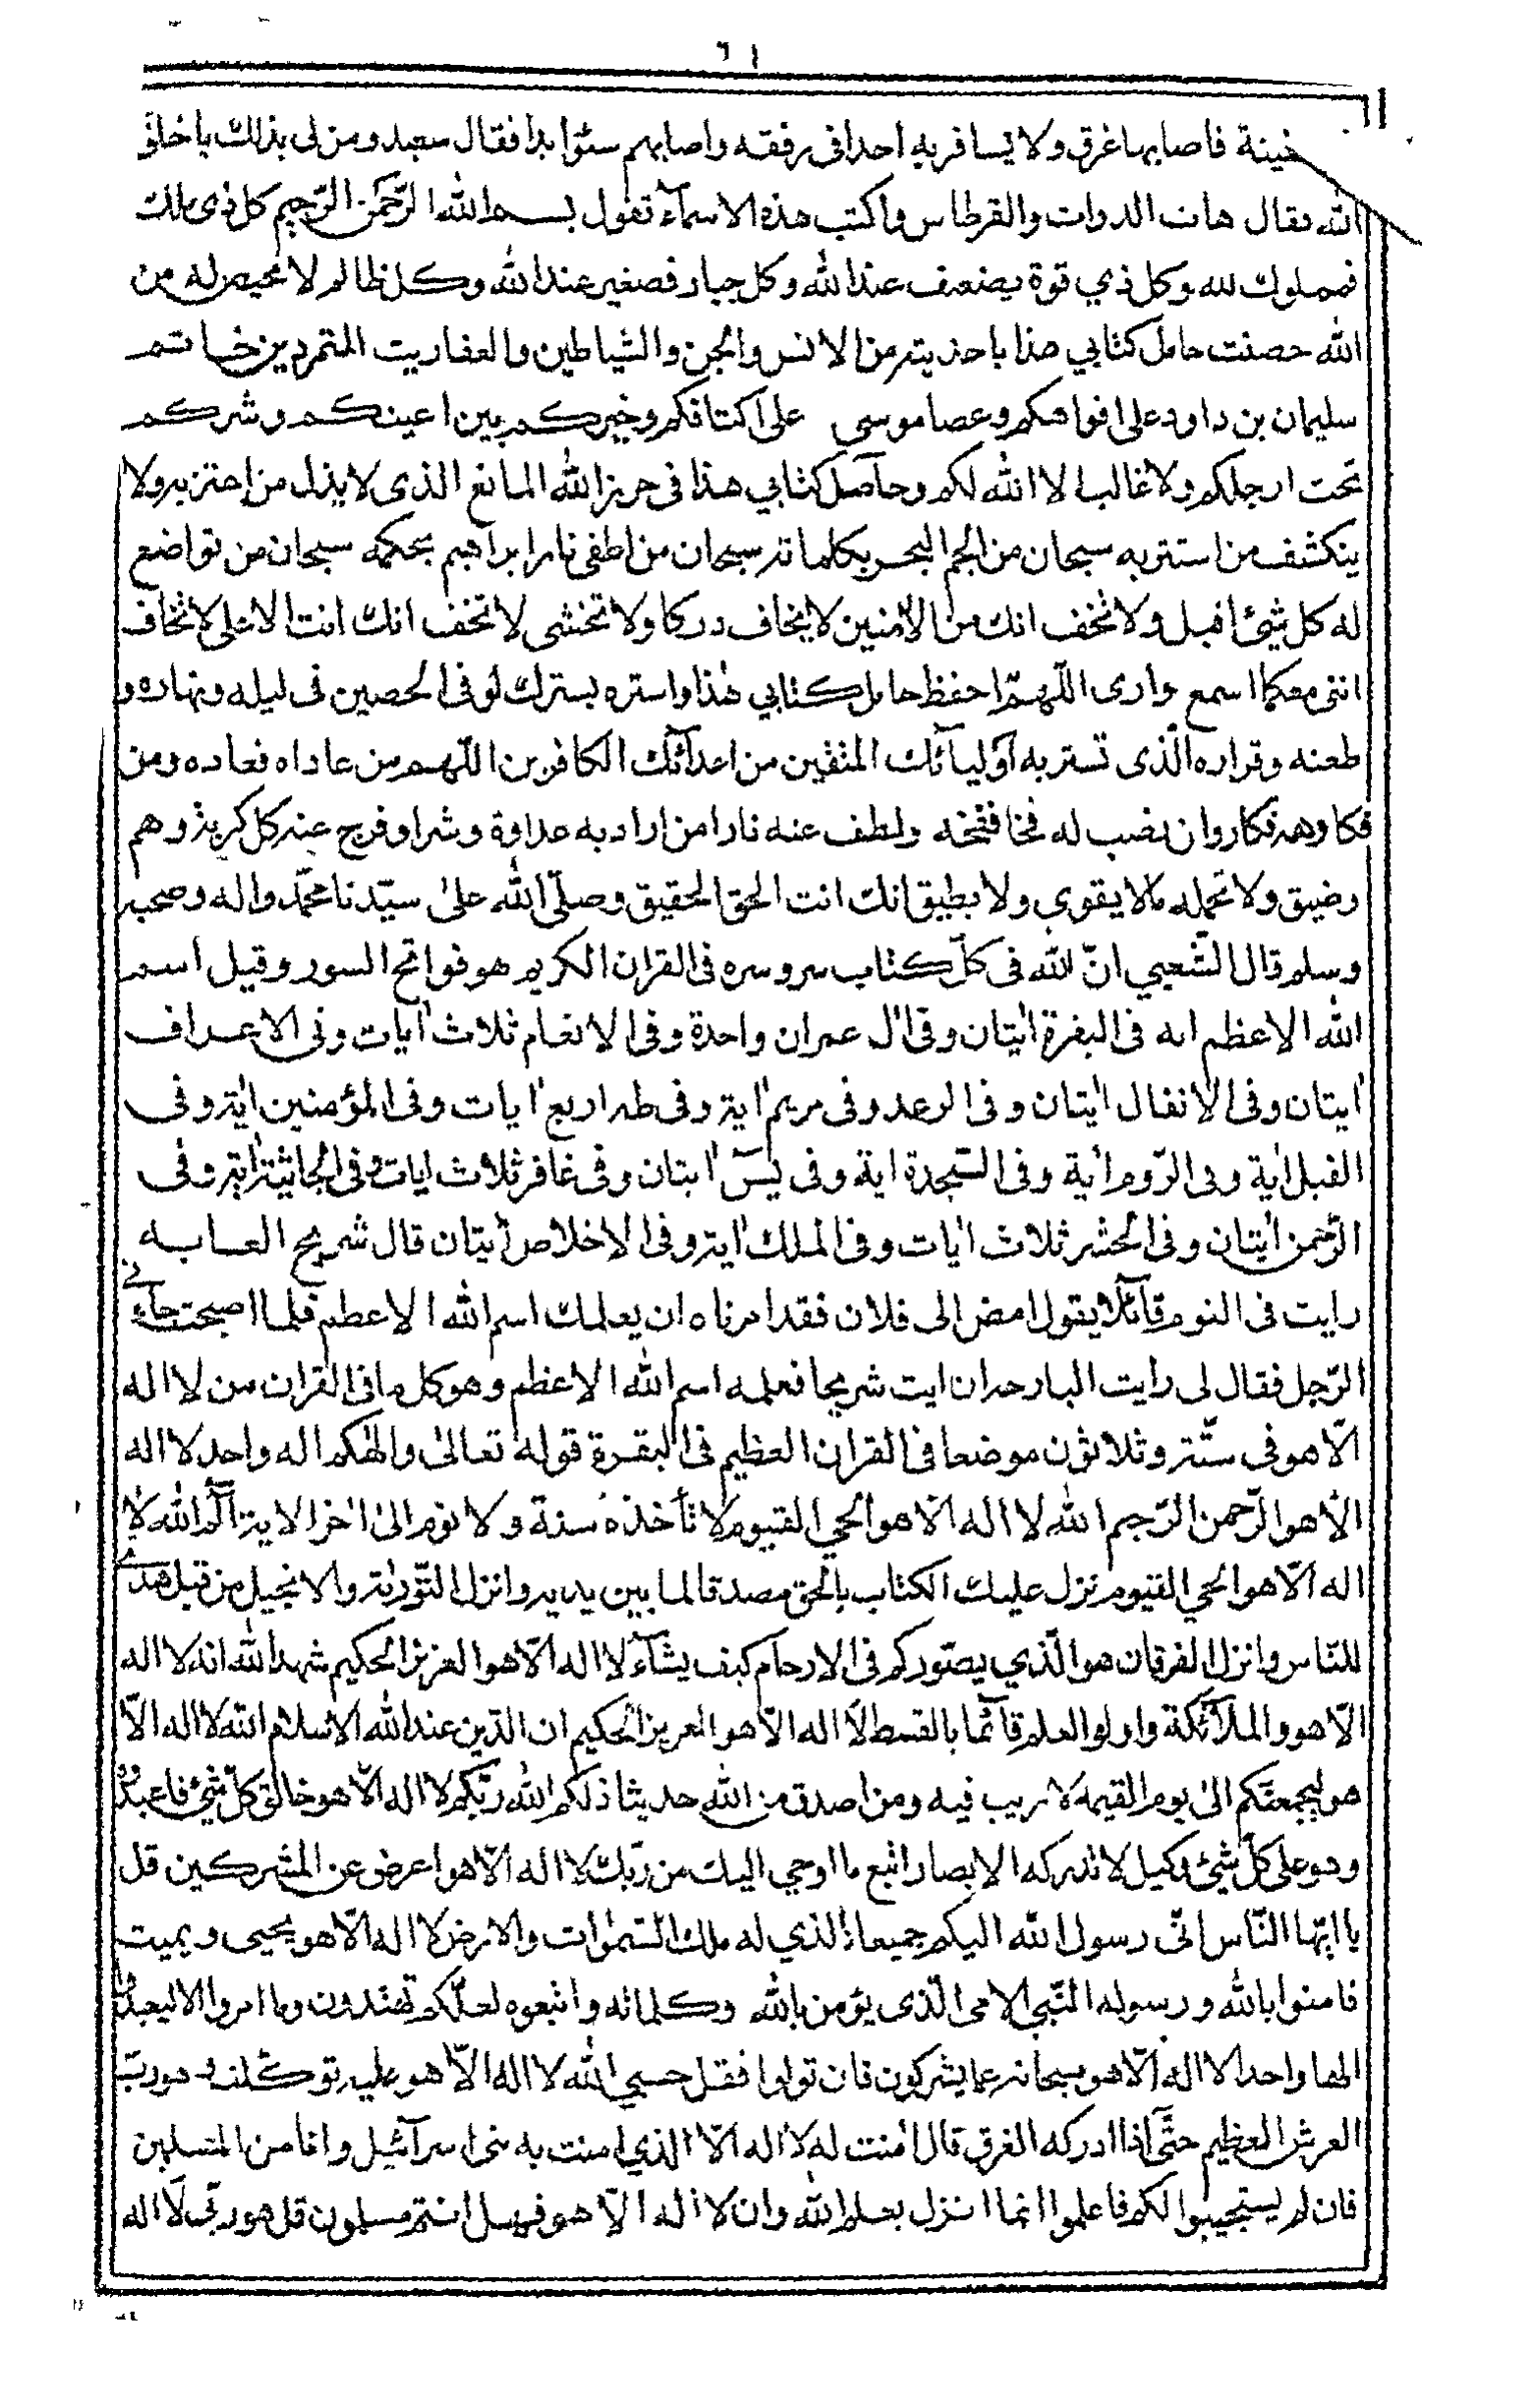 ٦١
خينة فاصابها غرق ولا يسافر به احدا فى رفقه واصابهم سئوا بدا فقال سعيد ومن لى بذلك ياخلق
الله فقال هات الدوات والقرطاس واكتب هذه الاسمآء تقول بسم الله الرّحمن الرّحيم كل ذى ملك
فمملوك لله وكل ذي قوة يضعف عند الله وكل جبار فصغير عند الله وكل ظالم لا محيص له من
الله حصنت حامل كتابي هذا من الانس والجن والشياطين والعفاريت المتمردين خاتم
سليمان بن داود على افواهكم وعصا موسى على اكتافكم وخيركم بين اعينكم وشركم
تحت ارجلكم ولا غالب الا الله لكم وحآمل كتابي هذا فى حرز الله المانع الذى لا يذل من احتز به ولا
ينكشف من استتر به سبحان من الجم البحر بكلماته سبحان من اطفى نار ابراهيم بحكمه سبحان من تواضع
له كل شئ اقبل ولا تخف انك من الآمنين لا يخاف دركا ولا تخشى لا تخف انك انت الاعلى لا تخاف
اننى معكما اسمع وارى اللّهمّ احفظ حامل كتابي هٰذا واستره بسترك لو فى الحصين فى ليله ونهاره و
طعنه وقراره الّذى تستر به آوليآئك المتقين من اعدآئك الكافرين اللّهم من عاداه فعاده ومن
فكاوهم فكار وان نصب له فخا فقخه ولطف عنه نارا من اراد به عداوة وشرا وفرج عنه كل كرب وهم
وضيق ولا تحمله مالا يقوي ولا يطيق انك انت الحق الحقيق وصلّى الله علىٰ سيّدنا محمّد واله وصحبه
وسلم قال الشّعبي انّ لله فى كلّ كتاب سر وسره فى القران الكريم هو فواتح السور وقيل اسم
الله الاعظم انه فى البقرة اٰيتان وفى اٰل عمران واحدة وفى الانعام ثلاث اٰيات وفى الاعراف
اٰيتان وفى الانفال اٰيتان وفى الرعد وفى مريم اٰية وفى طه اربع اٰيات وفى المؤمنين اٰية وفى
النمل اٰية وفى الرّوم اٰية وفى السّجدة اية وفى يسٓ اٰيتان وفى غافر ثلاث ايات وفى الجاثية اٰية وفى
الرّحمن اٰيتان وفى الحشر ثلاث اٰيات وفى الملك اٰية وفى الاخلاص اٰيتان قال شريح العابه
رايت فى النوم قآئلا يقول امض الى فلان فقد امرناه ان يعلمك اسم الله الاعظم فلما اصبحت جآءنى
الرّجل فقال لى رايت البارحة ان ايت شريحا فعلمه اسم الله الاعظم وهو كل ما فى القران من لا اله
الّا هو فى ستّة وثلاثون موضعا فى القران العظيم فى البقرة قوله تعالىٰ والٰهكم اله واحد لا اله
الّا هو الرّحمن الرّحيم الله لا اله الّا هو الحي القيوم لا تأخذه سنة ولا نوم الىٰ اٰخر الاية الٓمٓ الله لا
اله الّا هو الحي القيوم نزل عليك الكتاب بالحق مصدقا لما بين يديه وانزل التّورٰية والانجيل من قبل هدى
للنّاس وانزل الفرقان هو الّذي يصوّركم فى الارحآم كيف يشآء لا اله الّا هو العزيز الحكيم شهد الله انه لا اله
الّا هو والملآئكة واولو العلم قآئما بالقسط لا اله الّا هو العزيز الحكيم ان الدّين عند الله الاسلام الله لا اله الّا
هو ليجمعنّكم الىٰ يوم القيمة لا ريب فيه ومن اصدق من الله حديثا ذلكم الله ربّكم لا اله الّا هو خالق كلّ شئ فاعبدوه
وهو على كلّ شئ وكيل لا تدركه الابصار اتبع ما اوحي اليك من ربّك لا اله الّا هو اعرض عن المشركين قل
يا ايّها النّاس انّى رسول الله اليكم جميعا الذي له ملك السّمٰوات والارض لا اله الّا هو يحيى ويميت
فامنوا بالله ورسوله النّبي الامى الّذى يؤمن بالله وكلماته واتبعوه لعلّكم تهتدون وما امروا الا ليعبدوا
الها واحدا لا اله الّا هو سبحانه عما يشركون فان تولوا فقل حسبي الله لا اله الّا هو عليه توكلت وهو ربّ
العرش العظيم حتّى اذا ادركه الغرق قال اٰمنت انه لا اله الّا الذي امنت به بنوا اسرآئيل وانا من المسلمين
فان لم يستجيبوا لكم فاعلموا انما انزل بعلم الله وان لا اله الّا هو فهل انتم مسلمون قل هو ربّى لا اله